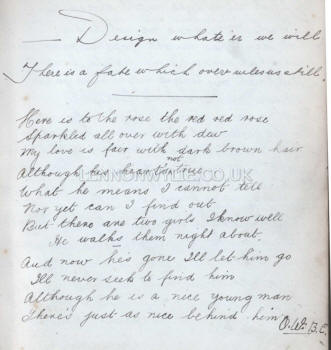 — Design whate'er we will
There is a fate which overrules us still
Here is to the rose the red red rose
Sparkled all over with dew
My love is fair with dark brown hair
not
Although his heart's true
What he means I cannot tell
Nor yet can I find out
But there are two girls I know well
He walks them night about.
And now he's gone I'll let him go
I'll never seek to find him
Although he is a nice young man
There's just as nice behind him
B.E.